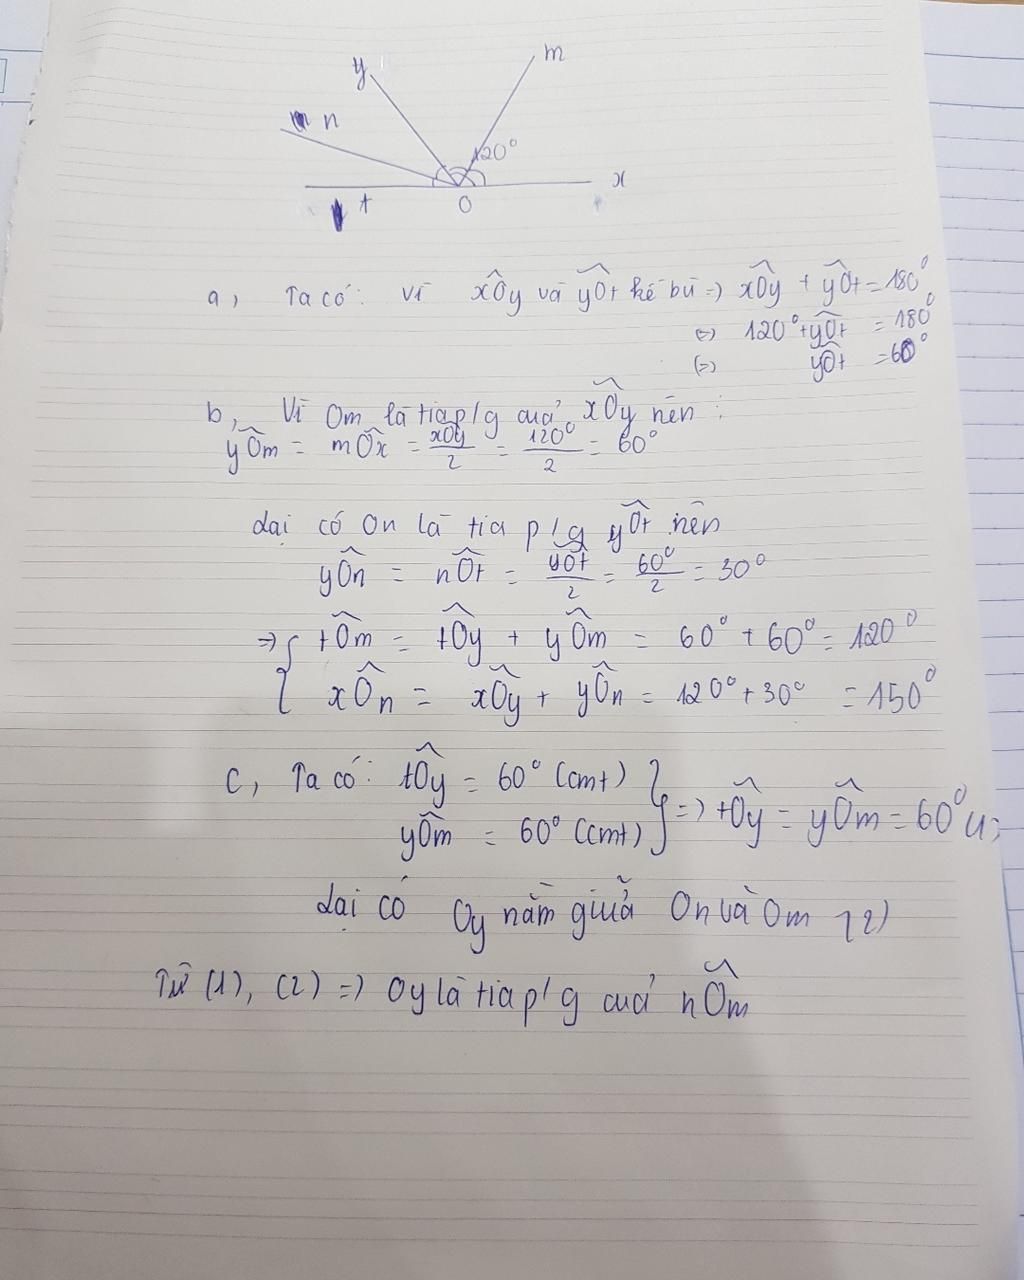 y
m
n
120°
x
t
O
a, Ta có: Vì xÔy và yÔt kề bù => xÔy + yÔt = 180°
<=> 120° + yÔt = 180°
(=) yÔt = 60°
b, Vì Om là tia p/g của xÔy nên :
yÔm = mÔx = xÔy/2 = 120°/2 = 60°
Lại có On là tia p/g yÔt nên
yÔn = nÔt = yÔt/2 = 60°/2 = 30°
=> { tÔm = tÔy + yÔm = 60° + 60° = 120°
xÔn = xÔy + yÔn = 120° + 30° = 150°
c, Ta có: tÔy = 60° (cmt) } => tÔy = yÔm = 60° (1)
yÔm = 60° (cmt)
Lại có Oy nằm giữa On và Om (2)
Từ (1), (2) => Oy là tia p/g của nÔm